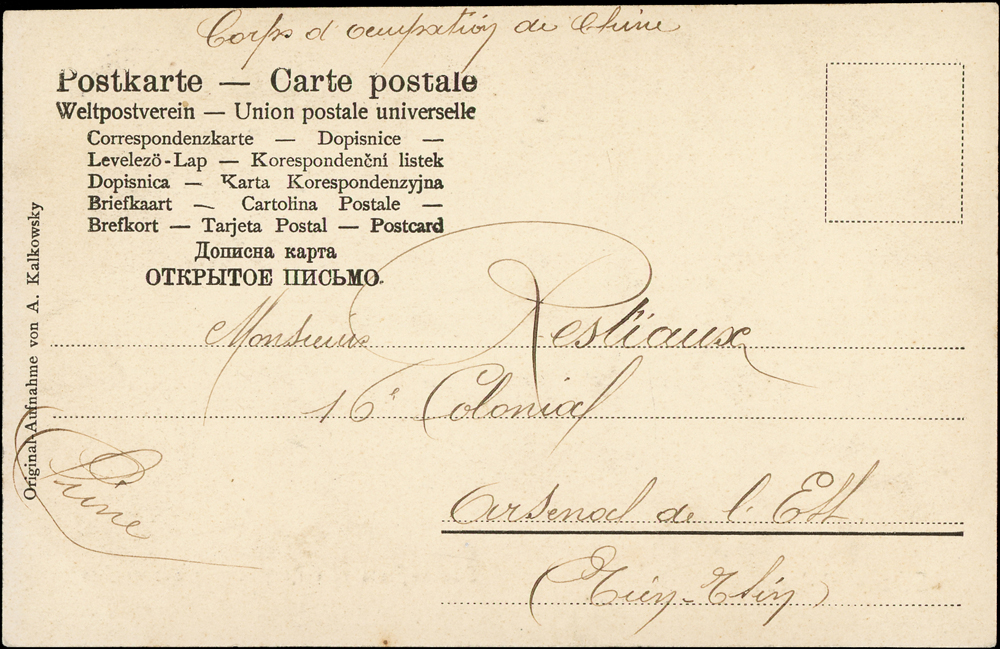 Corps d'ocupation de Chine
Postkarte — Carte postale
Weltpostverein — Union postale universelle
Correspondenzkarte — Dopisnice —
Levelezö-Lap — Korespondenční listek
Dopisnica — Karta Korespondenzyjna
Briefkaart — Cartolina Postale —
Brefkort — Tarjeta Postal — Postcard
Дописна карта
ОТКРЫТОЕ ПИСЬМО.
Original-Aufnahme von A. Kalkowsky
Monsieur Restiaux
16e Colonial
Chine
Arsenal de l'Est
(Tien-Tsin)